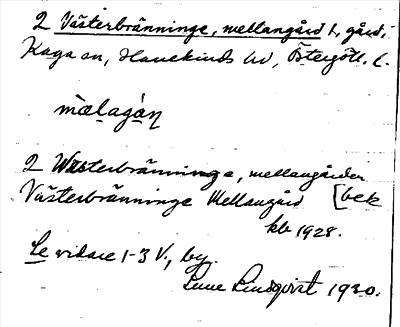 2 Västerbränninge, mellangård 1, gård,
Kaga sn, Hanekinds hd, Östergötl. l.
mæ̀lagån
2 Wästerbränninge, mellangården
Västerbränninge Mellangård [bek
kb 1928.
Se vidare 1-3 V., by.
Sune Lindqvist 1930.